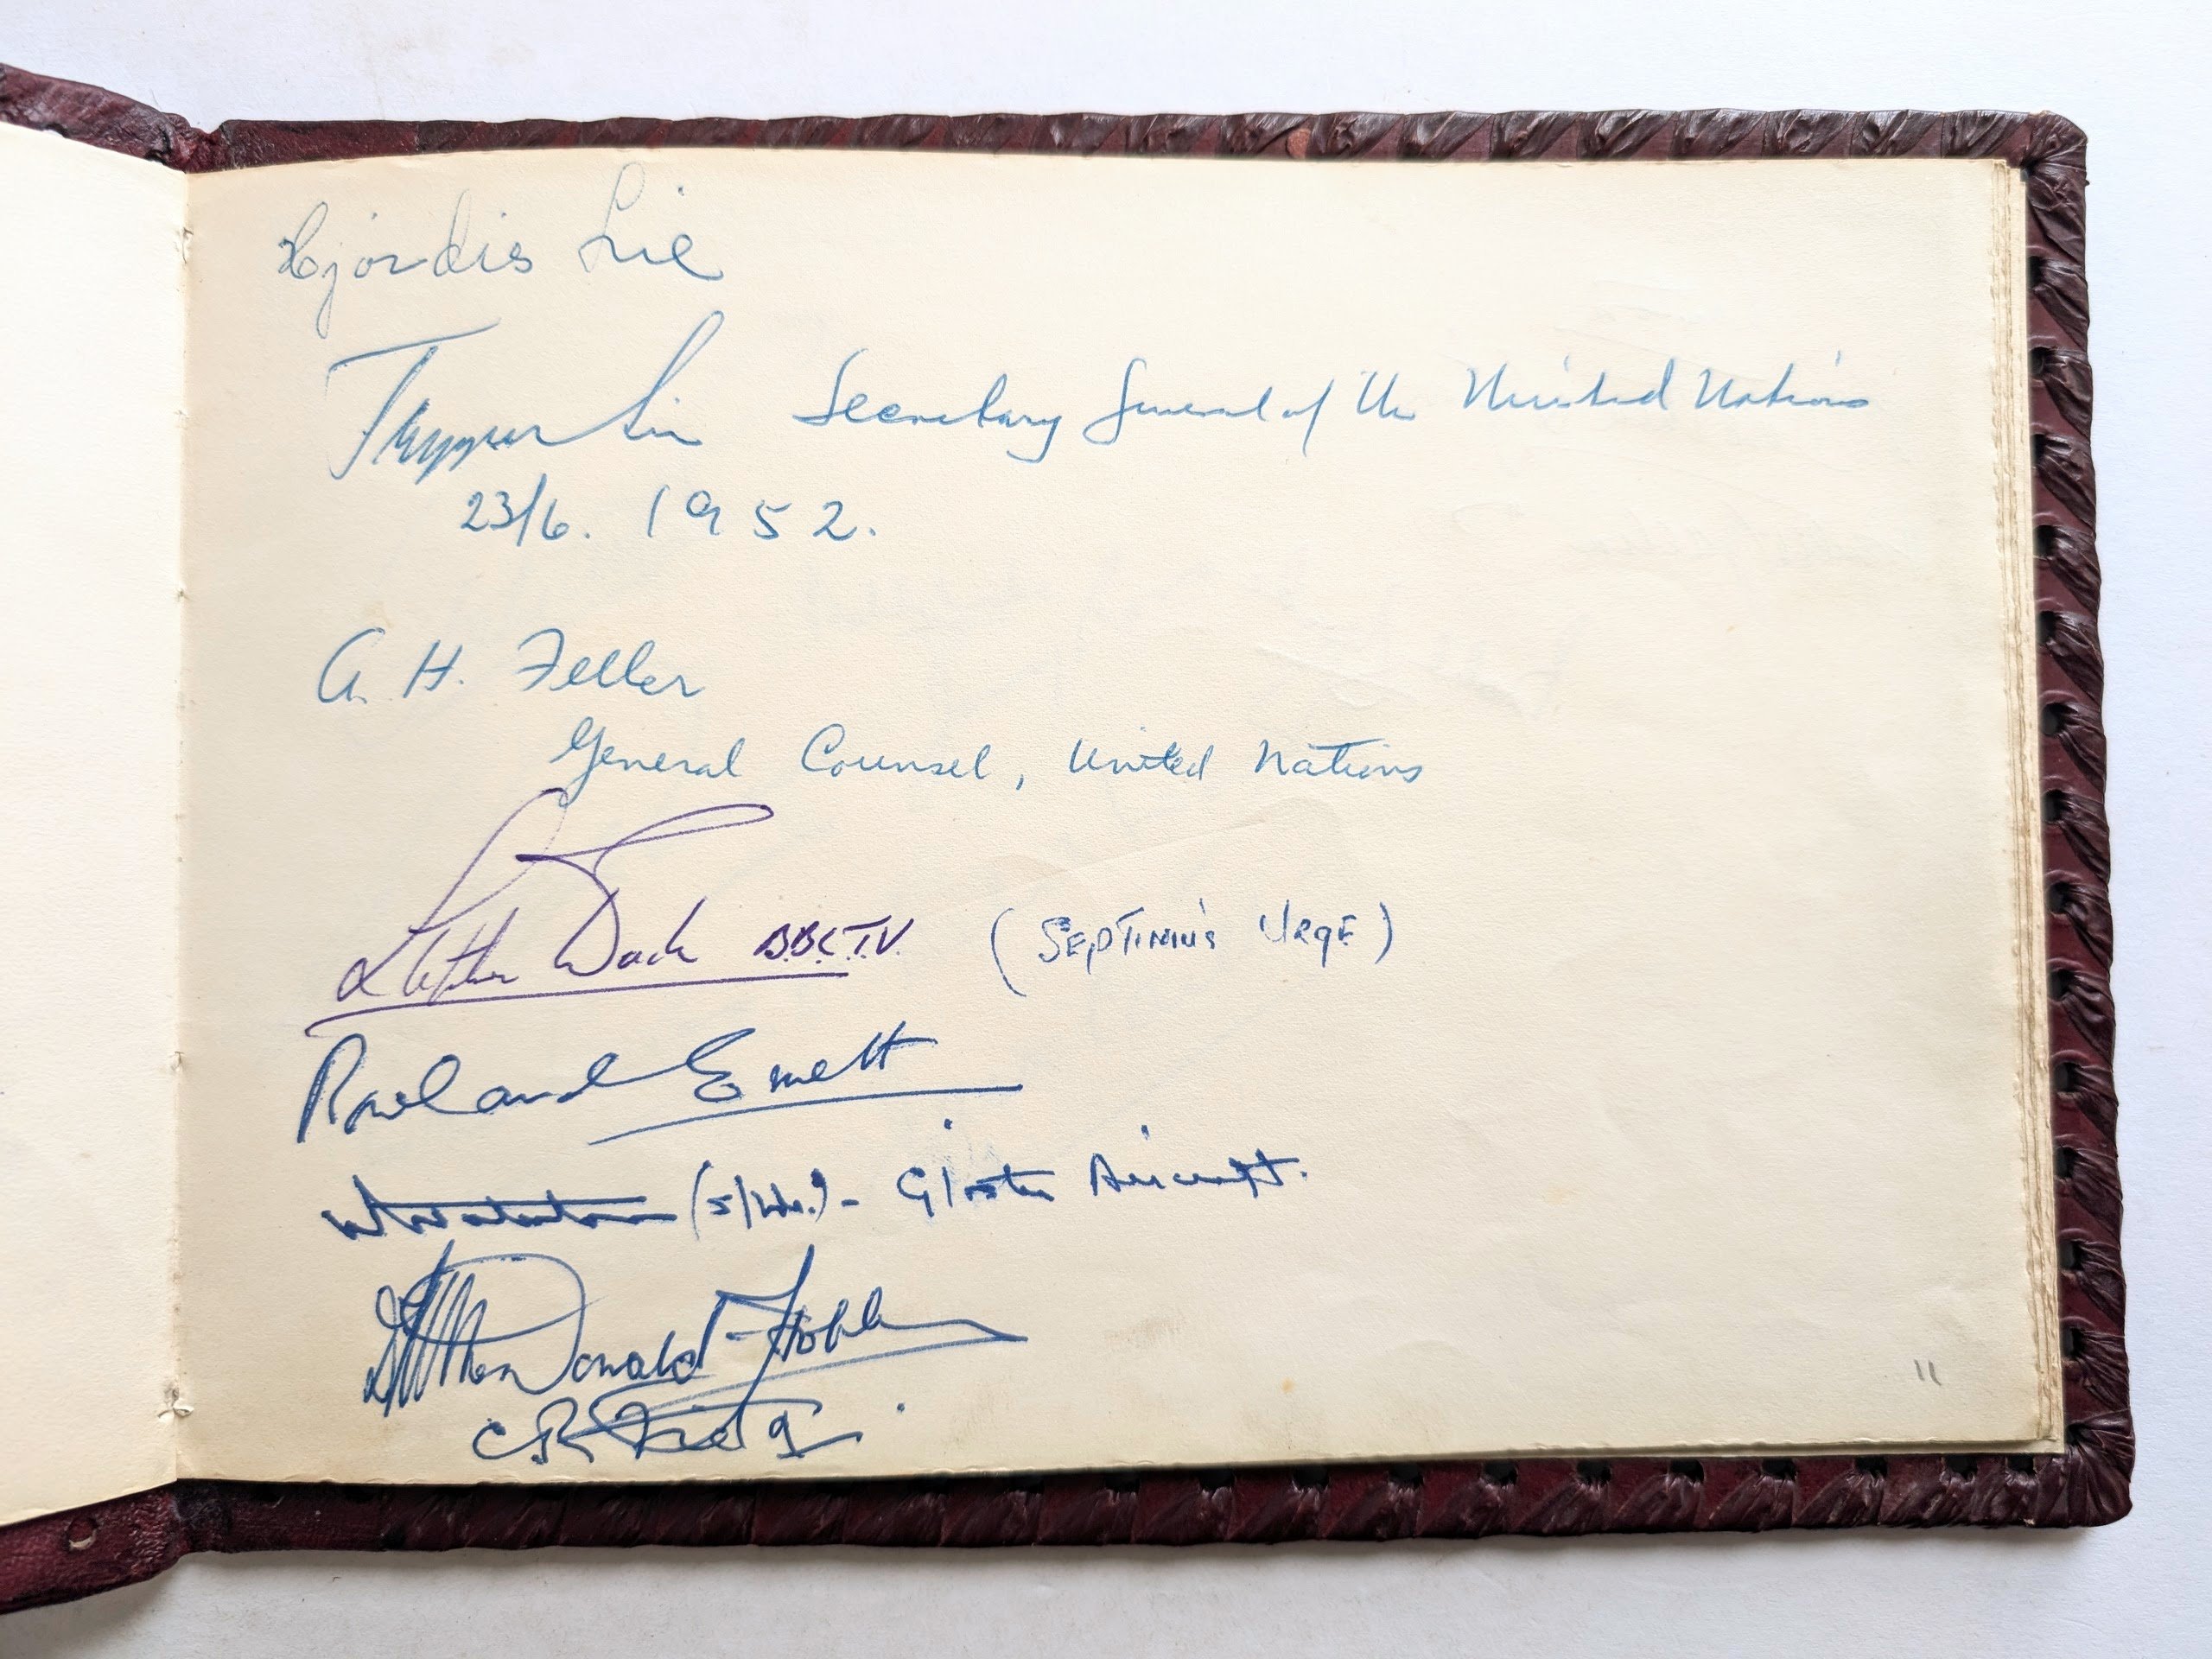 Hjördis Lie
Trygve Lie Secretary General of the United Nations
23/6. 1952.
A. H. Feller
General Counsel, United Nations
B.B.C.T.V. (SEPTIMUS URGE)
Rowland Emett
(S/Ldr.) - Gloster Aircraft.
Donald-
C R
11